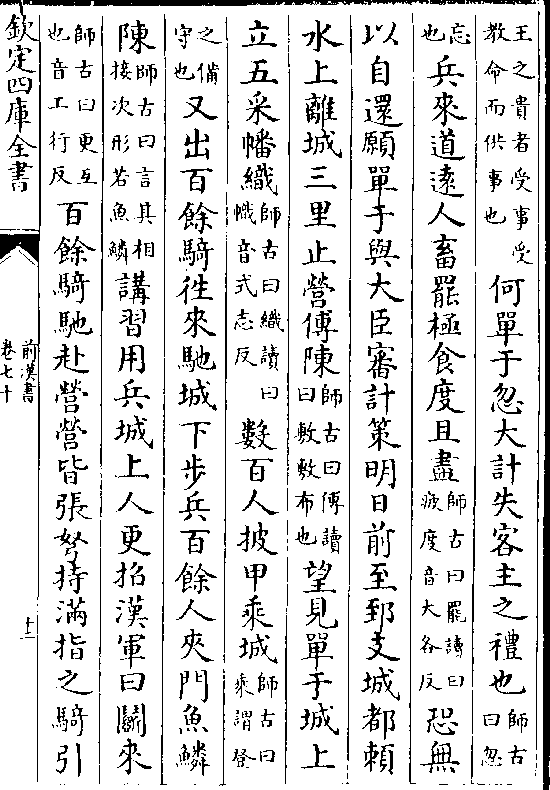 王之貴者受事受教命而供事也何單于忽大計失客主之禮也師古曰忽
忘也兵來道遠人畜罷極食度且盡師古曰罷讀曰疲度音大各反恐無
以自還願單于與大臣審計策明日前至郅支城都頼
水上離城三里止營傅陳師古曰傅讀曰敷敷布也望見單于城上
立五采幡織師古曰織讀曰幟音式志反數百人披甲乘城師古曰乘謂登
之備守也又出百餘騎徃來馳城下步兵百餘人夾門魚鱗
陳師古曰言其相接次形若魚鱗講習用兵城上人更招漢軍曰鬬來
師古曰更互也音工行反百餘騎馳赴營營皆張弩持滿指之騎引
欽定四庫全書
前漢書
卷七十
十二